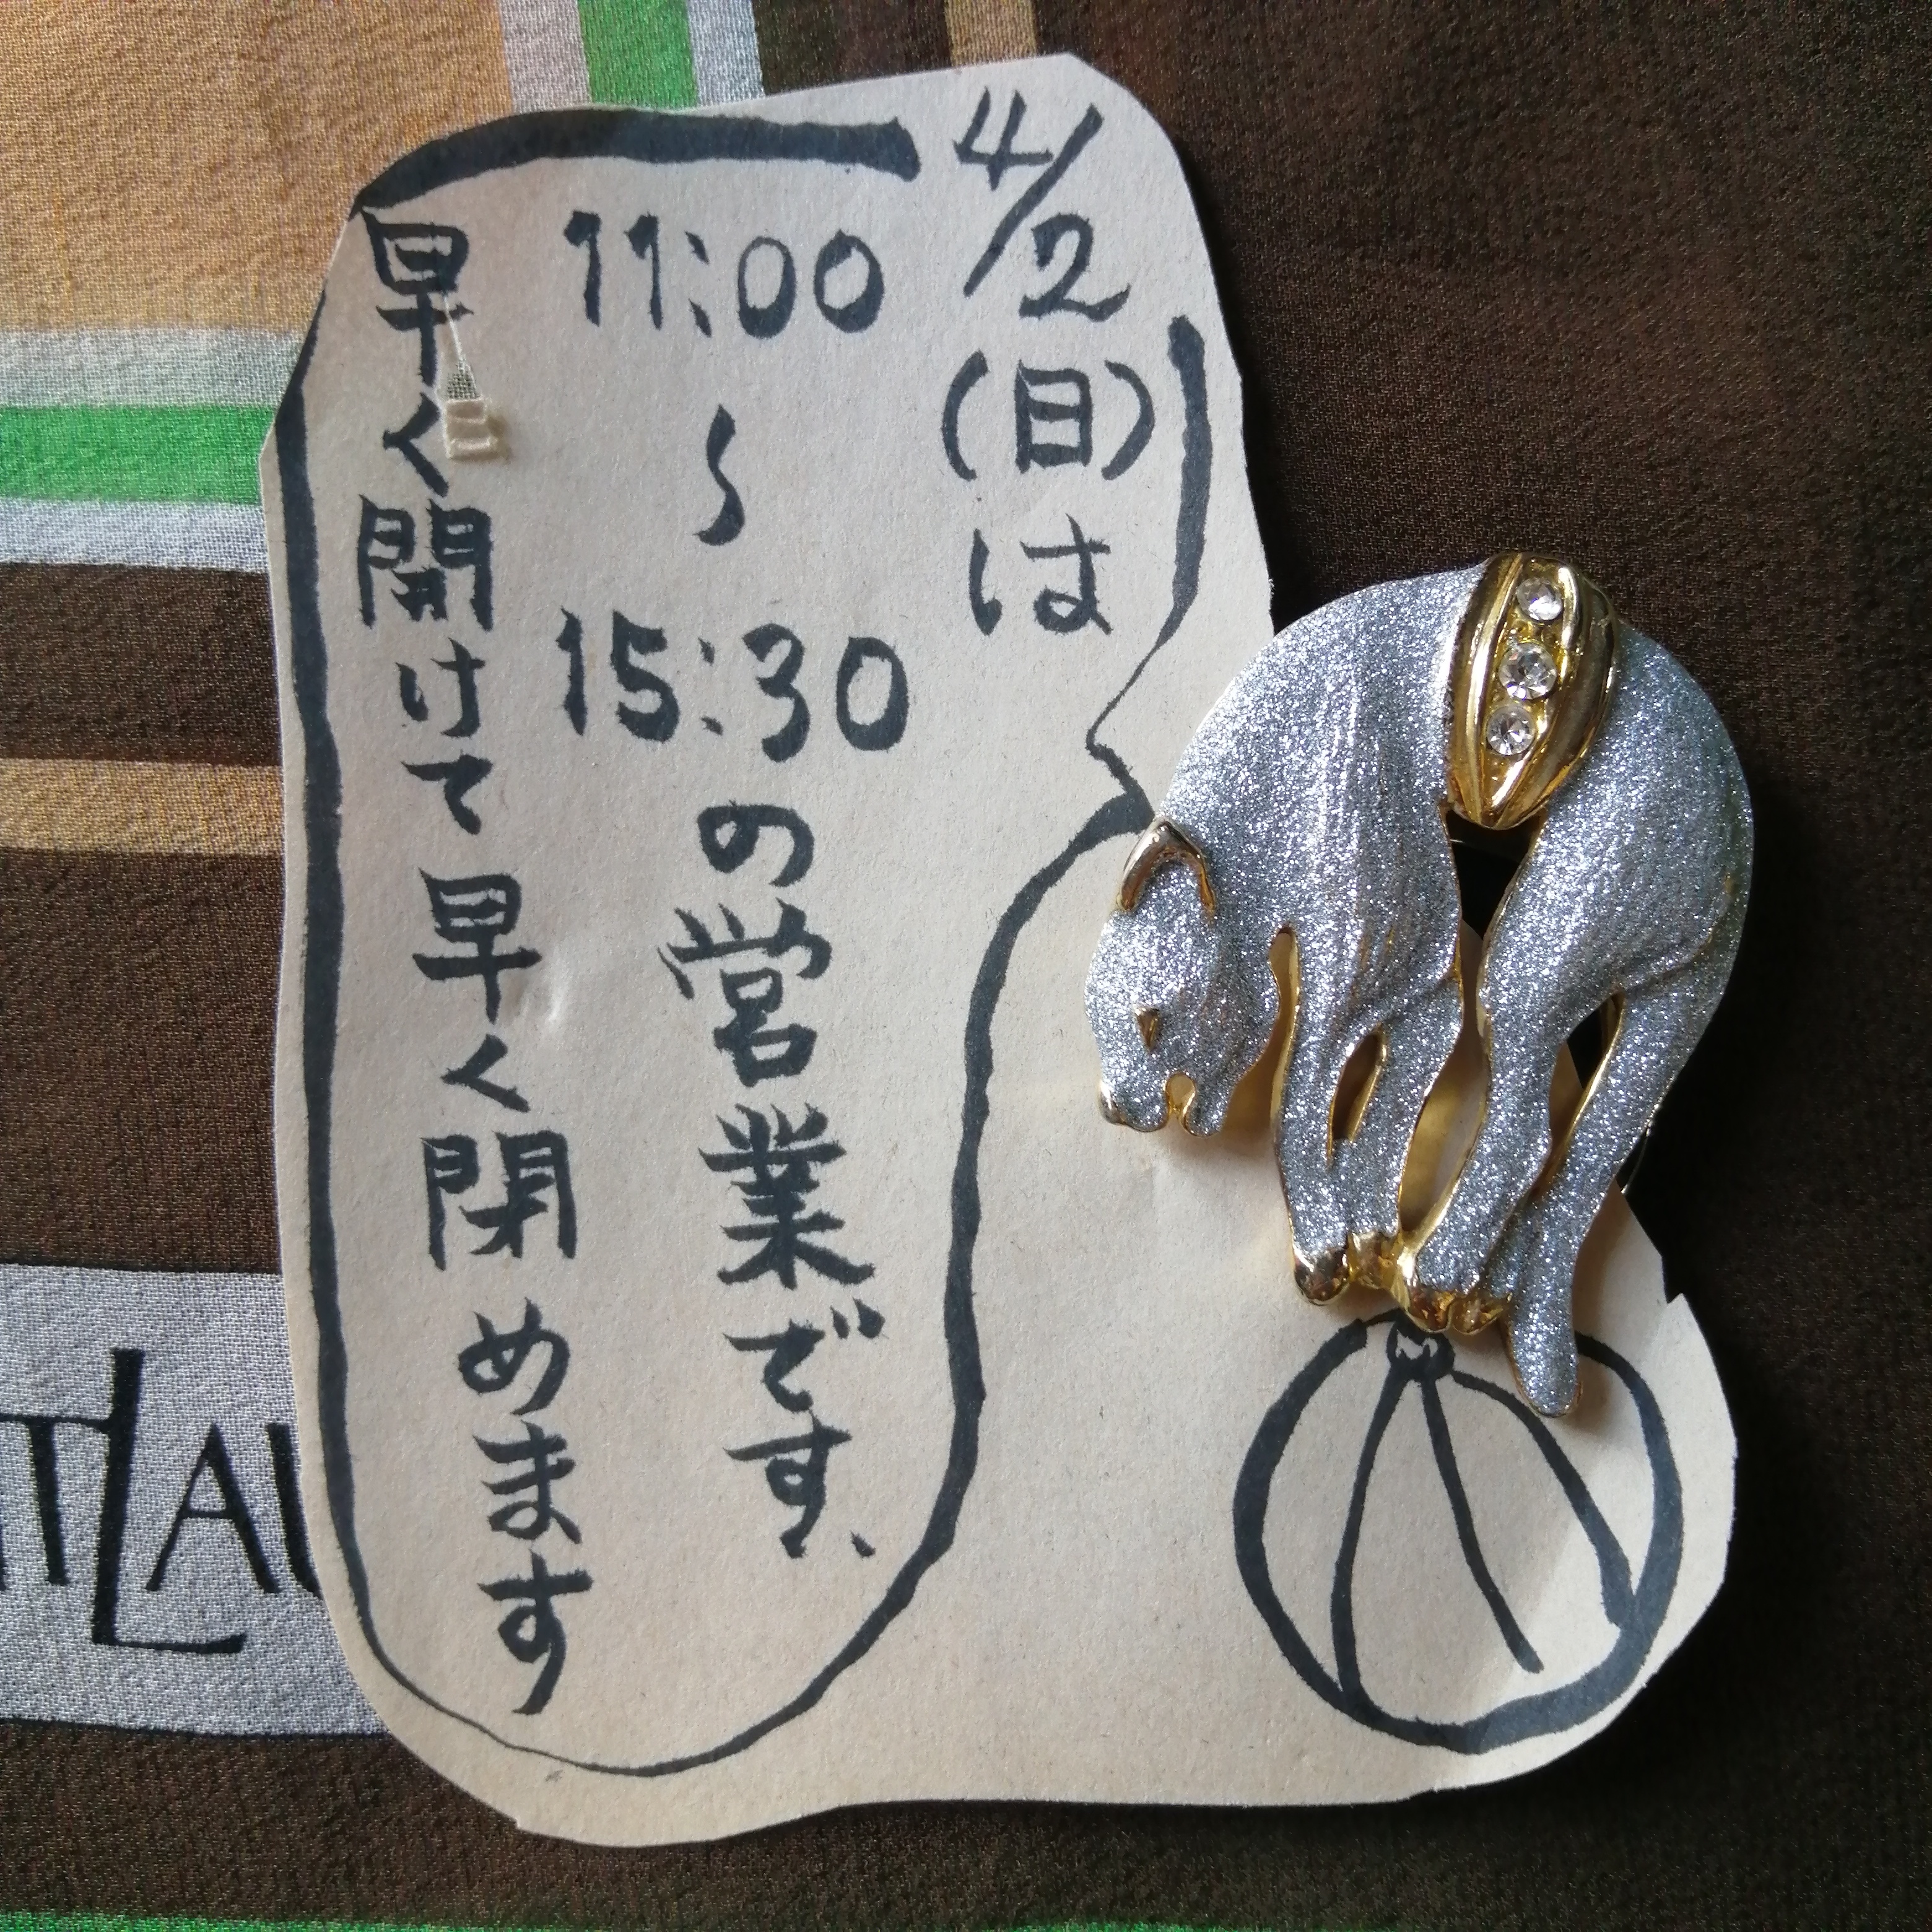 4/2(日)は
11:00
〜
15:30
の営業です、
早く開けて早く閉めます
TLAU